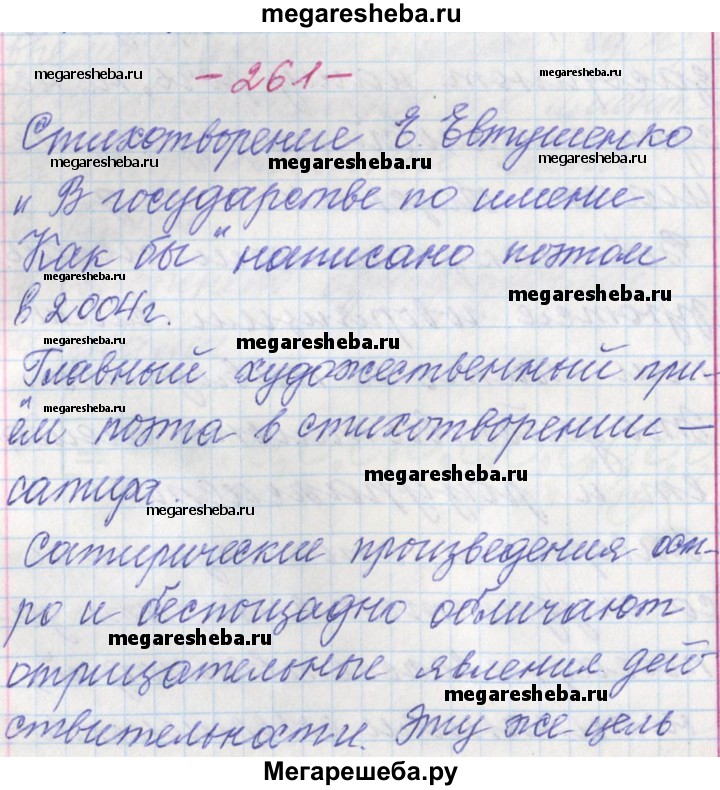 megaresheba.ru
megaresheba.ru
- 261 -
megaresheba.ru
Стихотворение Е. Евтушенко
megaresheba.ru
megaresheba.ru
„В государстве по имени
Как бы“ написано поэтом
megaresheba.ru
megaresheba.ru
в 2004г.
megaresheba.ru
Главный художественный при-
megaresheba.ru
ём поэта в стихотворении —
megaresheba.ru
сатира.
megaresheba.ru
Сатирические произведения ост-
ро и беспощадно обличают
megaresheba.ru
отрицательные явления дей
megaresheba.ru
ствительности. Эту же цель
Мегарешеба.ру